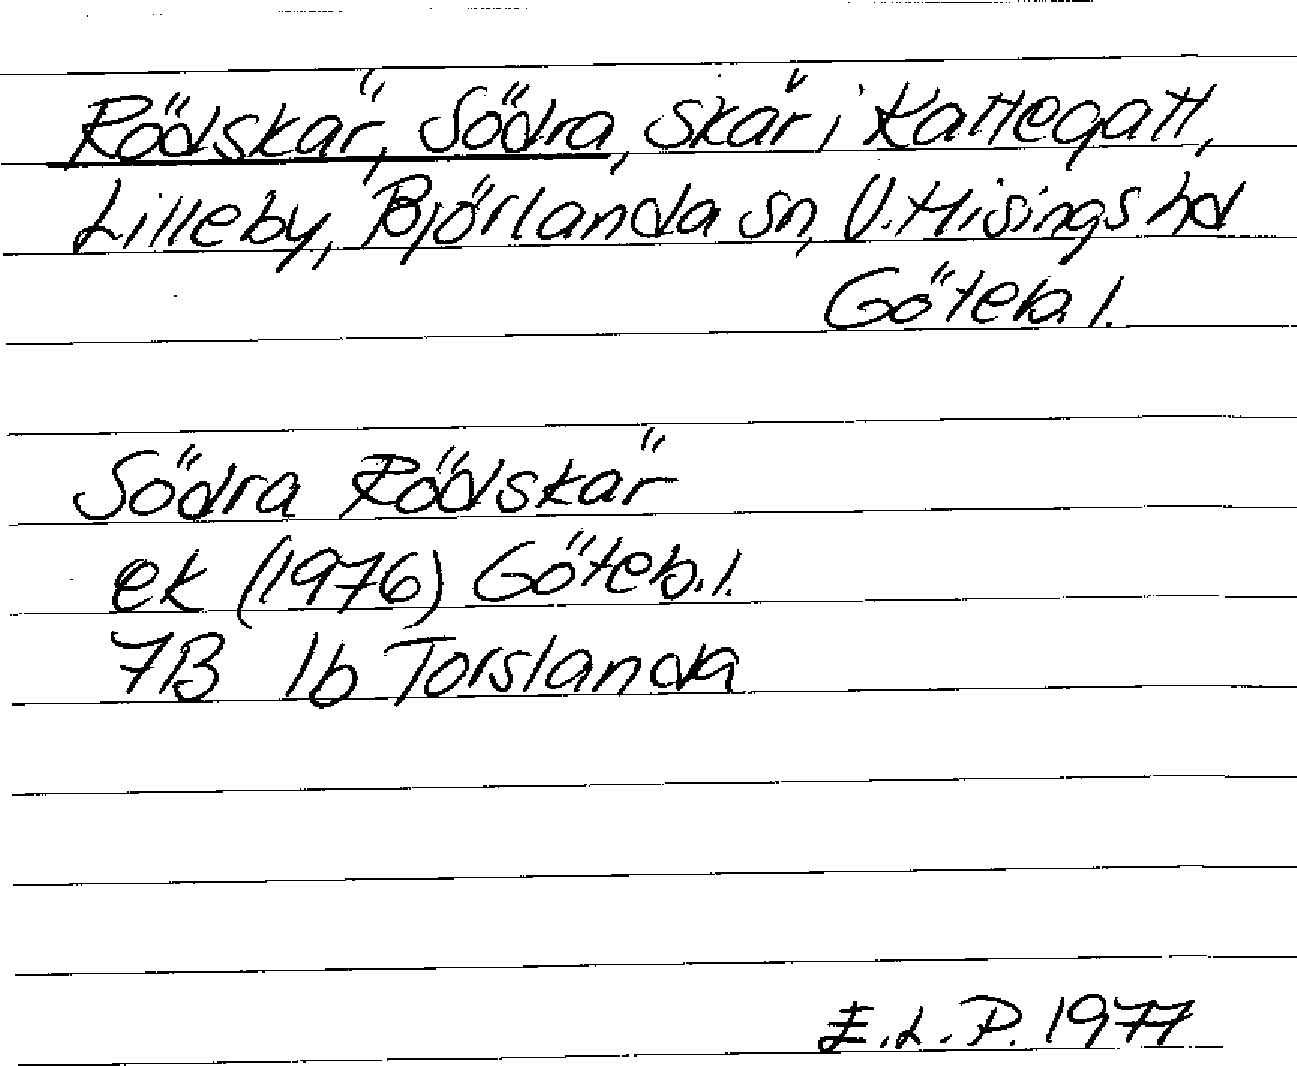 Rödskär, Södra, skär i Kattegatt,
Lilleby, Björlanda sn, V. Hisings hd
Göteb. l.
Södra Rödskär
ek (1976) Göteb. l.
7B 1b Torslanda
E.L.P. 1977